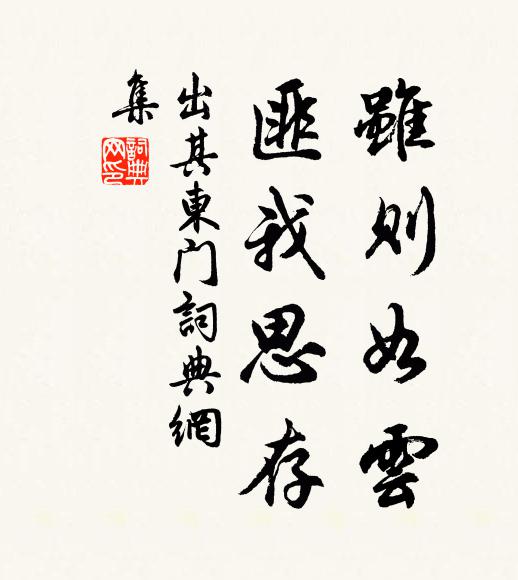 雖則如雲
匪我思存
出其東门詞典網
集
詞典
网印